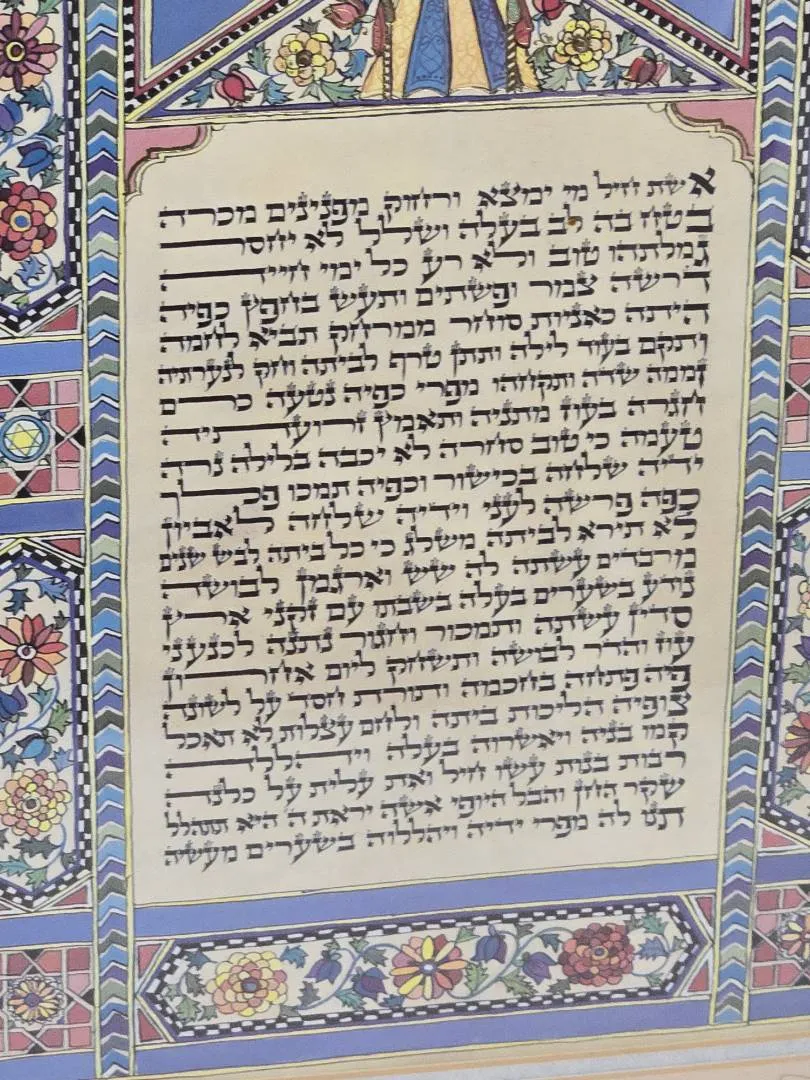 אשת חיל מי ימצא ורחוק מפנינים מכרה
בטח בה לב בעלה ושלל לא יחסר
גמלתהו טוב ולא רע כל ימי חייה
דרשה צמר ופשתים ותעש בחפץ כפיה
היתה כאניות סוחר ממרחק תביא לחמה
ותקם בעוד לילה ותתן טרף לביתה וחק לנערתיה
זממה שדה ותקחהו מפרי כפיה נטעה כרם
חגרה בעוז מתניה ותאמץ זרועתיה
טעמה כי טוב סחרה לא יכבה בלילה נרה
ידיה שלחה בכישור וכפיה תמכו פלך
כפה פרשה לעני וידיה שלחה לאביון
לא תירא לביתה משלג כי כל ביתה לבש שנים
מרבדים עשתה לה שש וארגמן לבושה
נודע בשערים בעלה בשבתו עם זקני ארץ
סדין עשתה ותמכור וחגור נתנה לכנעני
עוז והדר לבושה ותשחק ליום אחרון
פיה פתחה בחכמה ותורת חסד על לשונה
צופיה הליכות ביתה ולחם עצלות לא תאכל
קמו בניה ויאשרוה בעלה ויהללה
רבות בנות עשו חיל ואת עלית על כלנה
שקר החן והבל היופי אשה יראת ה היא תתהלל
תנו לה מפרי ידיה ויהללוה בשערים מעשיה